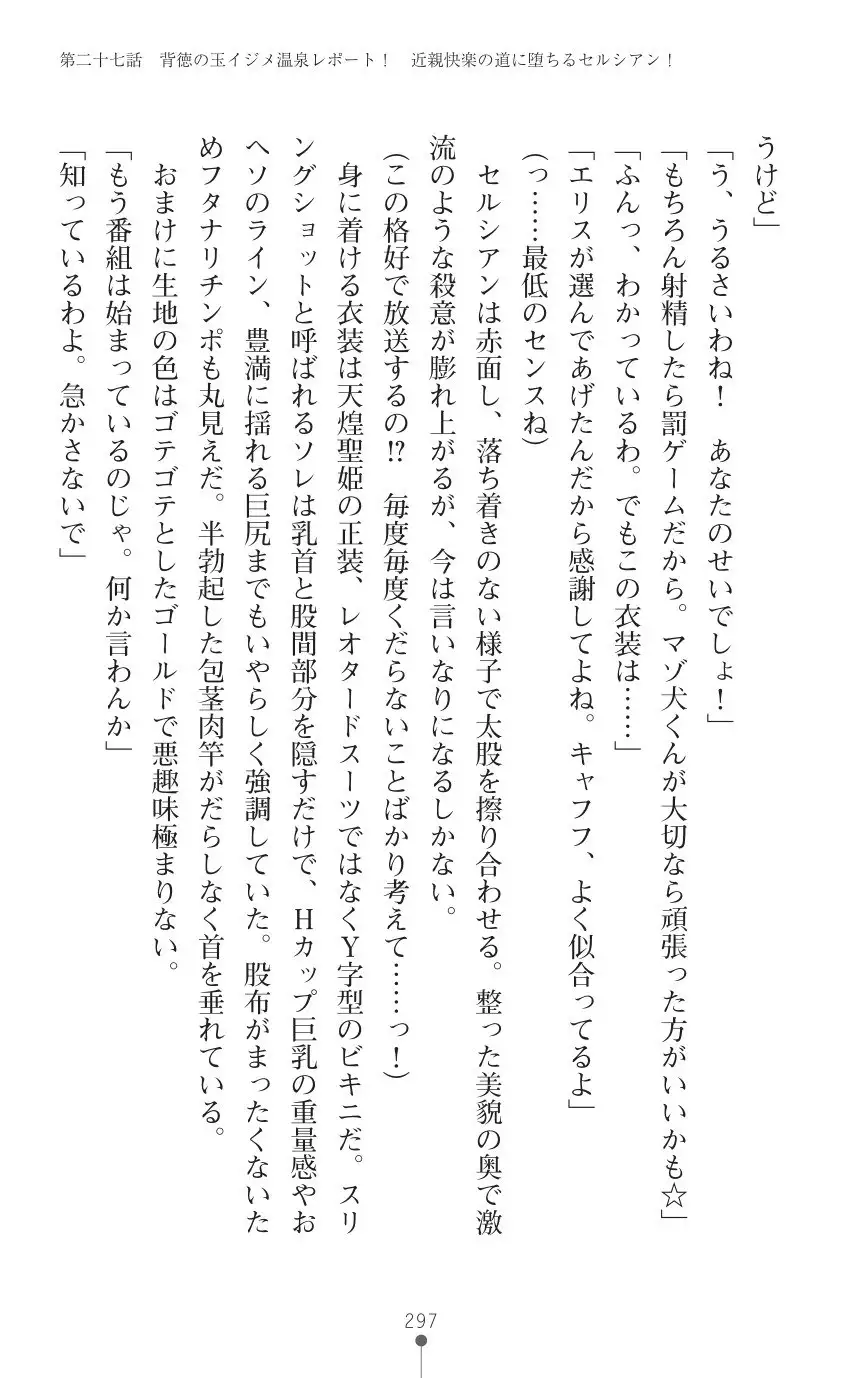 第二十七話　背徳の玉イジメ温泉レポート！　近親快楽の道に堕ちるセルシアン！
うけど」
「う、うるさいわね！　あなたのせいでしょ！」
「もちろん射精したら罰ゲームだから。マゾ犬くんが大切なら頑張った方がいいかも☆」
「ふんっ、わかっているわ。でもこの衣装は……」
「エリスが選んであげたんだから感謝してよね。キャフフ、よく似合ってるよ」
（っ……最低のセンスね）
　セルシアンは赤面し、落ち着きのない様子で太股を擦り合わせる。整った美貌の奥で激
流のような殺意が膨れ上がるが、今は言いなりになるしかない。
（この格好で放送するの!?　毎度毎度くだらないことばかり考えて……っ！）
　身に着ける衣装は天煌聖姫の正装、レオタードスーツではなくＹ字型のビキニだ。スリ
ングショットと呼ばれるソレは乳首と股間部分を隠すだけで、Ｈカップ巨乳の重量感やお
ヘソのライン、豊満に揺れる巨尻までもいやらしく強調していた。股布がまったくないた
めフタナリチンポも丸見えだ。半勃起した包茎肉竿がだらしなく首を垂れている。
　おまけに生地の色はゴテゴテとしたゴールドで悪趣味極まりない。
「もう番組は始まっているのじゃ。何か言わんか」
「知っているわよ。急かさないで」
297